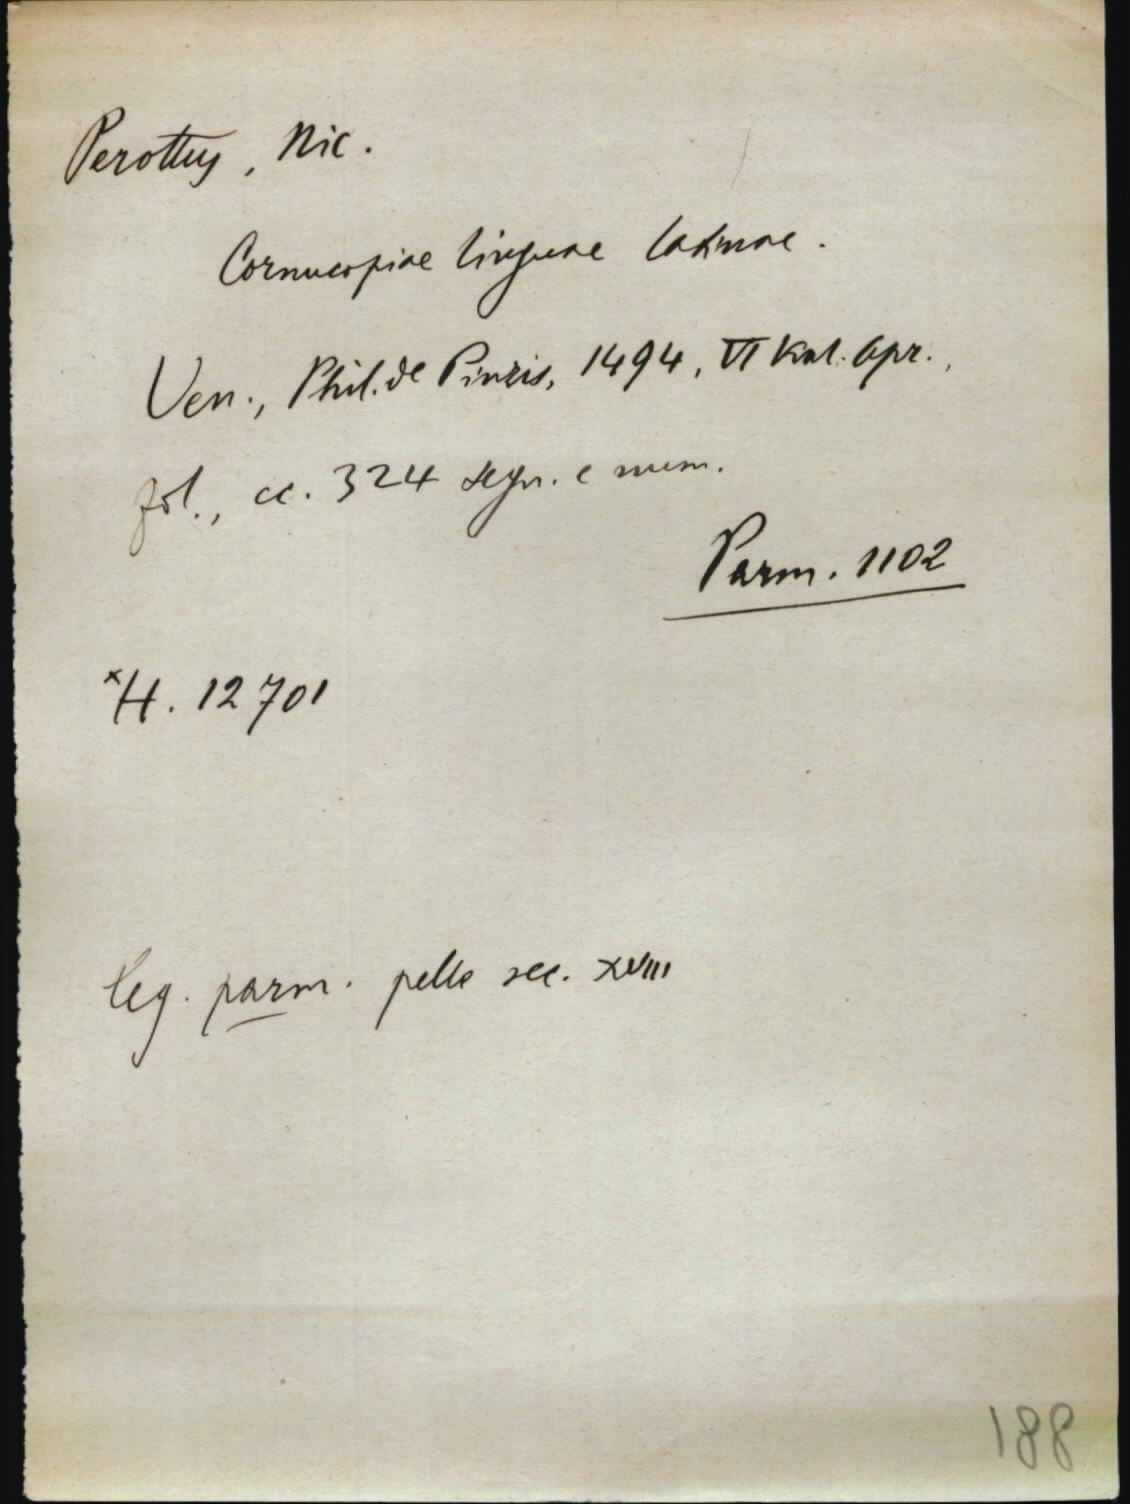 Perottus, Nic.
Cornucopiae linguae latinae.
Ven., Phil. de Pinzis, 1494, VI Kal. Apr.,
fol., cc. 324 segn. e num.
Parm. 1102
*H. 12701
leg. parm. pelle sec. XVIII
188